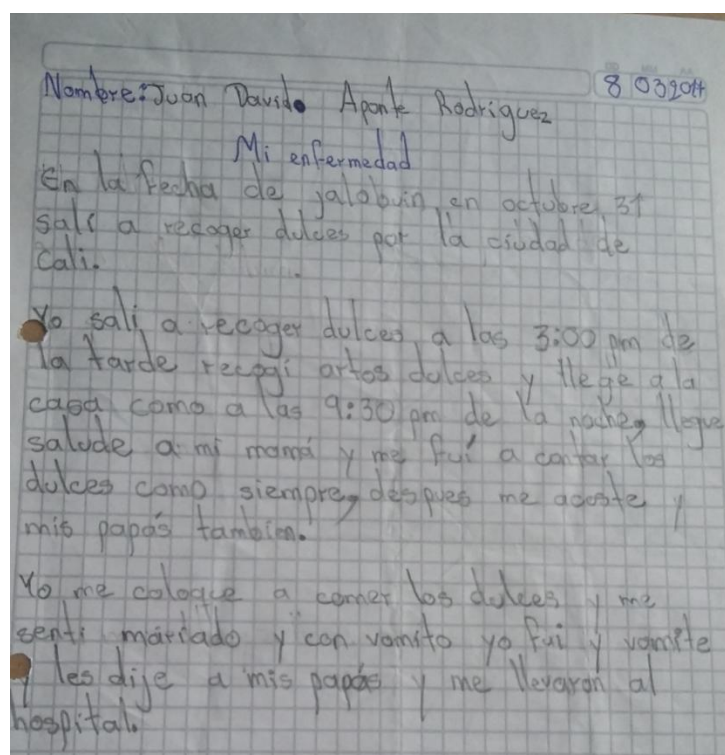 8 03 2014
Nombre: Juan David Aponte Rodriguez
Mi enfermedad
En la fecha de jalobuin, en octubre, 31
sali a recoger dulces por la ciudad de
cali.
Yo sali a recoger dulces, a las 3:00 pm de
la tarde recogi artos dulces y llege a la
casa como a las 9:30 pm de la noche, llegue
salude a mi mamá y me fuí a contar los
dulces como siempre, despues me acoste y
mis papás tambien.
Yo me coloque a comer los dulces y me
senti mariado y con vomito yo fui y vomite
y les dije a mis papás y me llevaron al
hospital.